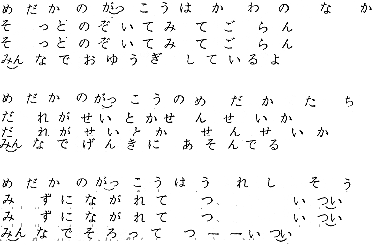 めだかのがっこうは かわのなか
そっとのぞいてみてごらん
そっとのぞいてみてごらん
みんなでおゆうぎ しているよ
めだかのがっこうのめだかたち
だれがせいとかせんせいか
だれがせいとかせんせいか
みんなでげんきにあそんでる
めだかのがっこうはうれしそう
みずにながれてつ、いつい
みずにながれてつ、いつい
みんなでそろってつーーいつい